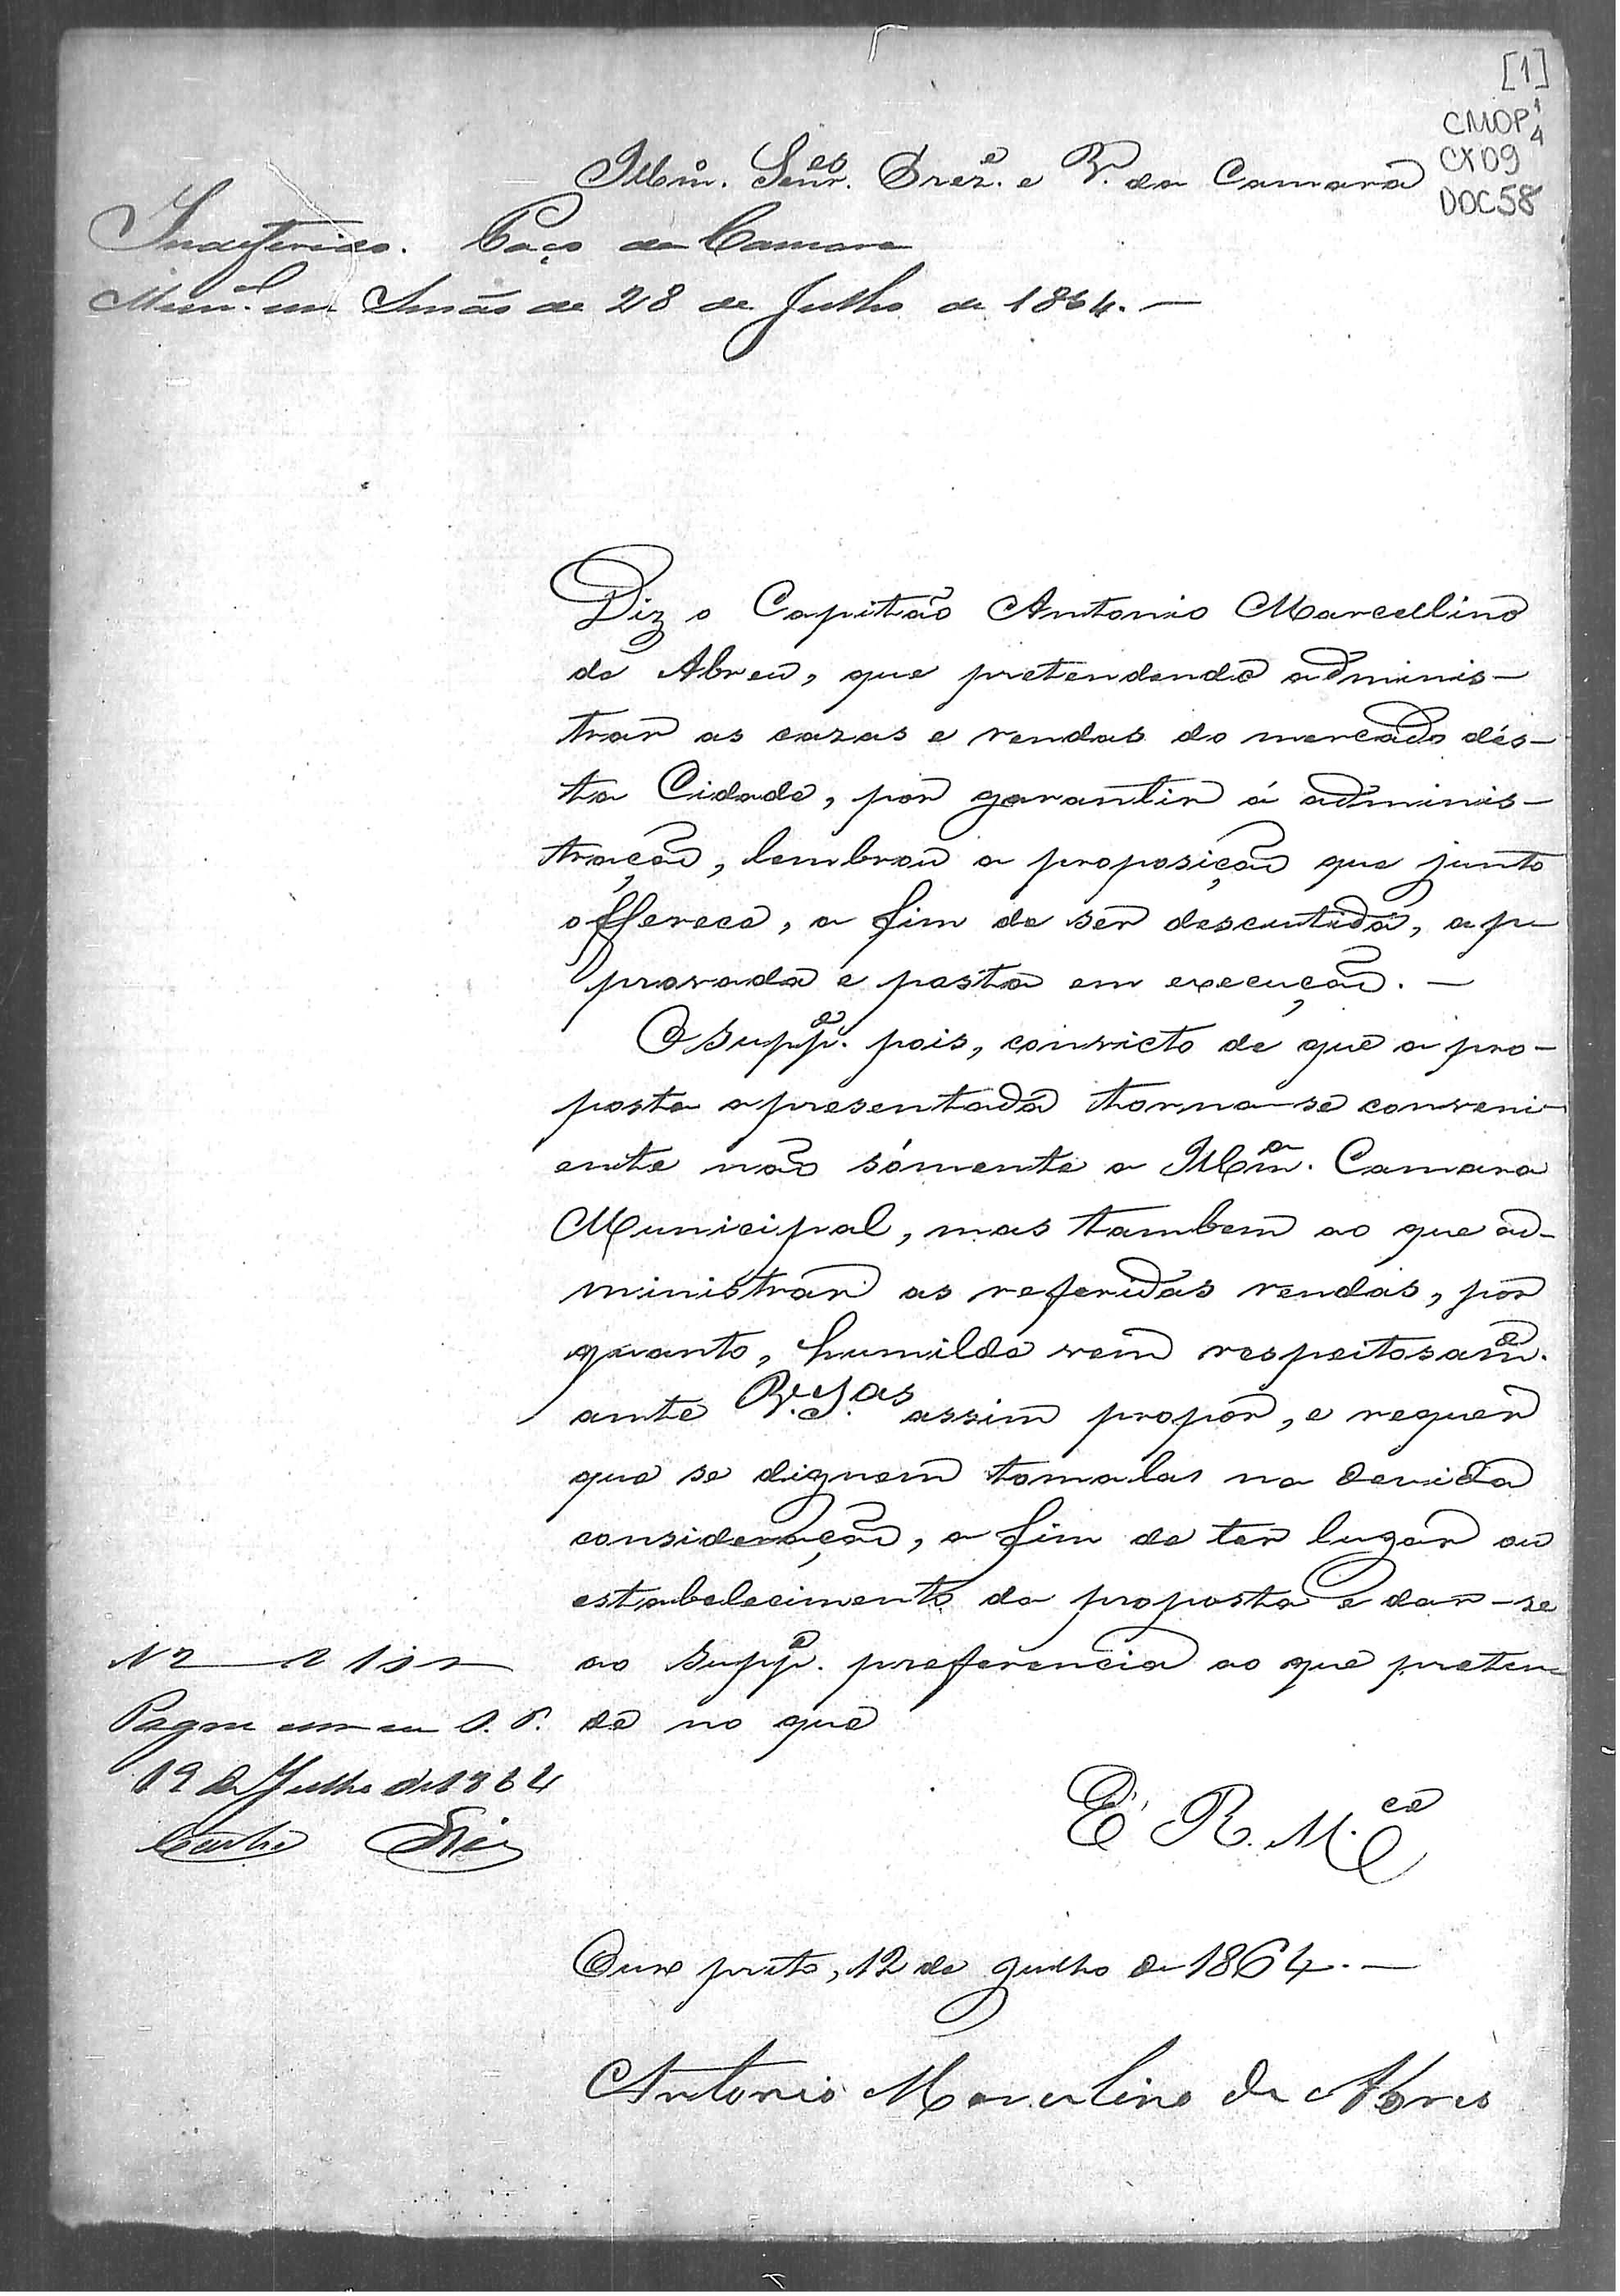 [1]
CMOP 1
4
CX09
DOC58
Illmº. Senrˢ. Prezᵉ. e V. da Camara
Indeferido. Paço da Camara
Munᵃˡ. em Sessão de 28 de Julho de 1864.—
Diz o Capitão Antonio Marcellino
de Abreu, que pretendendo adminis-
trar as cazas e rendas do mercado dés-
ta Cidade, por garantir á adminis-
tração, lembrou a proposição que junto
offerece, a fim de ser descutida, ap-
provada e posta em execução. —
O Suppᵉ. pois, convicto de que a pro-
posta apresentada thorna-se conveni-
ente não sómente a Illmᵃ. Camara
Municipal, mas tambem ao que ad-
ministrar as referidas rendas, por
quanto, humilde vem respeitosamᵉ.
ante V.Sᵃˢ assim propor, e requer
que se dignem tomalas na devida
consideração, a fim de ter lugar ou
estabelecimento da proposta e dar-se
ao Suppᵉ. preferencia ao que preten-
de no que
E. R. M.ᶜᵉ
Nº 2
Pagou
19 de Julho de 1864
Ouro preto, 12 de julho de 1864.—
Antonio Marcelino de Abreu